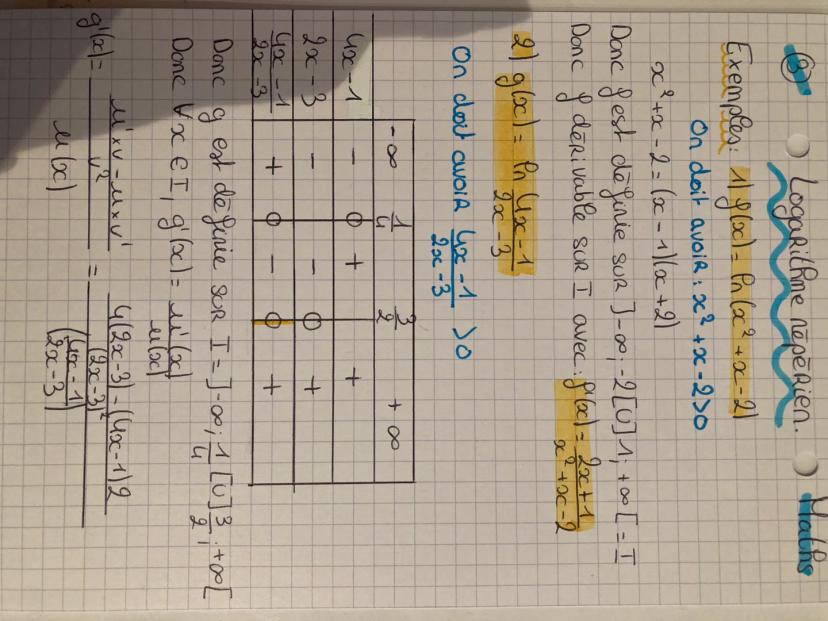 ③ Logarithme népérien. Maths
Exemples: 1) f(x) = ln(x²+x-2)
On doit avoir : x²+x-2>0
x²+x-2 = (x-1)(x+2)
Donc f est définie sur ]-∞;-2[∪]1;+∞[ = I
Donc f dérivable sur I avec: f'(x) = (2x+1)/(x²+x-2)
2) g(x) = ln (4x-1)/(2x-3)
On doit avoir (4x-1)/(2x-3) >0
-∞ 1/4 3/2 +∞
4x-1 - 0 + +
2x-3 - - 0 +
(4x-1)/(2x-3) + 0 - 0 +
Donc g est définie sur I = ]-∞; 1/4[∪]3/2; +∞[
Donc ∀x ∈ I, g'(x) = u'(x)/u(x)
g'(x) = ((u'×v - u×v')/v²)/u(x) = ((4(2x-3) - (4x-1)2)/(2x-3)²)/((4x-1)/(2x-3))